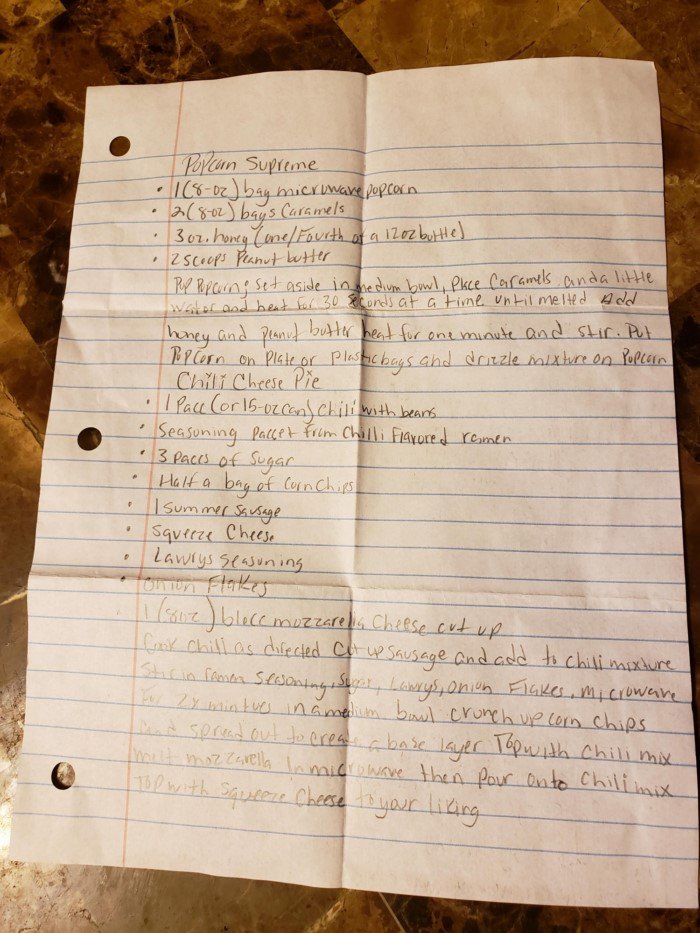 Popcorn Supreme
• 1 (8-oz) bag microwave popcorn
• 2 (8-oz) bags Caramels
• 3 oz. honey (one/Fourth of a 12oz bottle)
• 2 scoops Peanut butter
Pop Popcorn, set aside in medium bowl, Place Caramels and a little
water and heat for 30 seconds at a time until melted Add
honey and Peanut butter heat for one minute and stir. Put
PopCorn on Plate or Plastic bags and drizzle mixture on Popcorn
Chili Cheese Pie
• 1 Pacc (or 15-oz can) chili with beans
• Seasoning Paccet from Chilli Flavored ramen
• 3 Paccs of Sugar
• Half a bag of Corn Chips
• 1 Summer Sausage
• Squeeze Cheese
• Lawrys seasoning
• onion Flakes
1 (8oz) blocc mozzarella Cheese cut up
Cook chili as directed Cut up sausage and add to chili mixture
Stir in ramen seasoning, sugar, Lawrys, onion Flakes, microwave
For 2½ mintues in a medium bowl crunch up corn chips
and spread out to create a base layer Top with chili mix
melt mozzarella in microwave then Pour onto chili mix
Top with squeeze Cheese to your liking